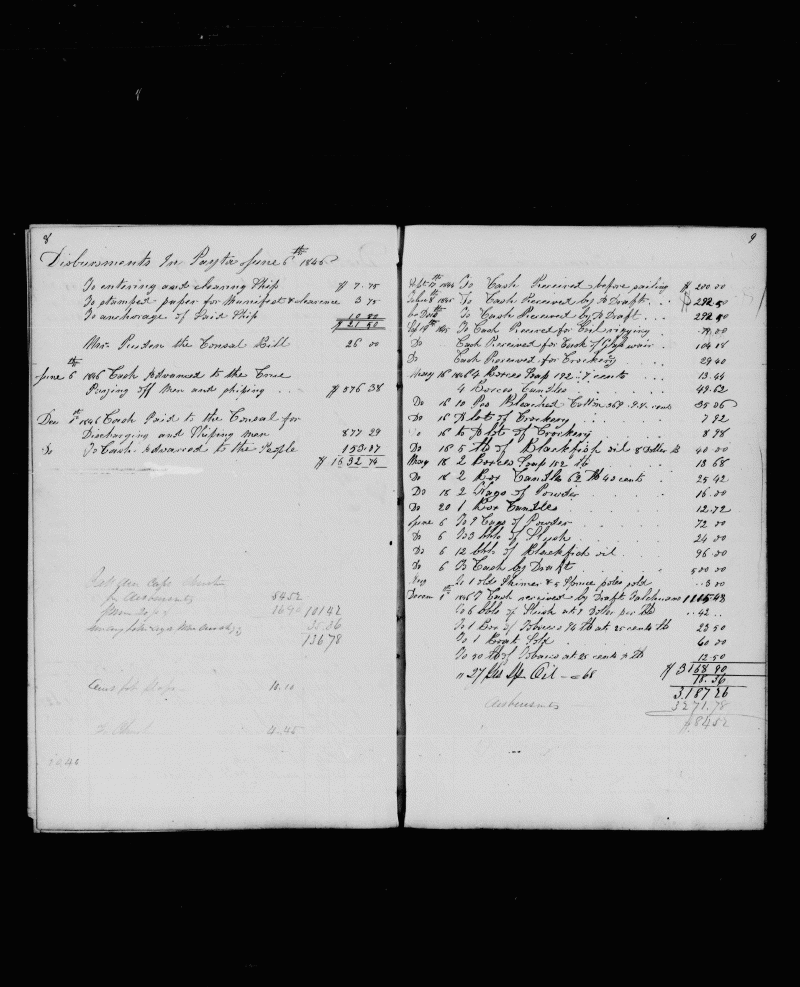 8
Disbursments In Payta June 6th 1846
To entering and clearing Ship $ 7.75
To stamped paper for Manifest & clearence 3 75
To anchorage of Said Ship 10 00
$ 21 50
Mr. the Consal Bill 26 00
June 6th 1846 Cash Advanced to the Crue
Paying off Men and shiping $ 576 38
Dec 1st 1846 Cash Paid to the Consal for
Discharging and Shiping men 877 29
Do To Cash Advanced to the People 153.07
$ 1632 74
5452
10142
35.36
13678
4.45
9
Cash Received before sailing $ 200 00
To Cash Received by Draft $ 292 50
To Cash Received by Draft 292 50
To Cash Received for rigging
Do Cash Received for Cask of 104 18
Do Cash Received for Crockery 29 40
May 16 1846 4 Boxes Soap 192 7 cents 13.44
4 Boxes Candles 49.62
Do 16 10 Pcs Bleached Cotton 369 cents 35.06
Do 16 lot of Crockery 7 92
16 lot of Crockery 8 98
Do 18 5 bb of Blackfish oil 8 Doller b 40 00
May 18 2 Boxes Soap 152 lb 13 68
Do 18 2 Box Candles 62 lb 40 cents 25.42
Do 18 2 Kags of Powder 16.00
Do 20 1 Box Candles 12.72
June 6 To 9 Cags of Powder 72 00
Do 6 To 3 bbls of Slush 24 00
Do 6 12 bbls of Blackfish oil 96.00
Do 6 To Cash by Draft 500 00
Aug To 1 old & 5 Spruce poles sold 3 00
Decem 1st 1846 Cash received by Draft 1115 48
To 6 bbls of Slush at 7 Dollr per bb 42
To 1 Box of Tobacco 94 lb at 25 cents lb 23 50
To 1 Boat Sold 60 00
To 50 lb of Tobacco at 25 cents lb 12.50
$ 3168 90
" 27 Oil 68 18.36
3.187 26
disbursments 3271.78
$ 8452